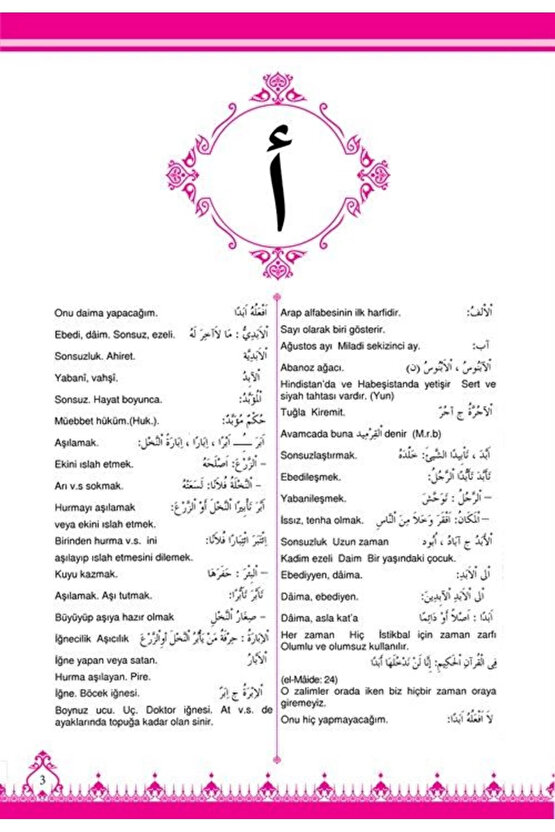 أ
اَلْاَلِفُ: Arap alfabesinin ilk harfidir.
Sayı olarak biri gösterir.
آب: Ağustos ayı Miladi sekizinci ay.
اَلْآبَنُوسُ ، اَلْاَبْنُوسُ (ن) Abanoz ağacı.
Hindistan'da ve Habeşistanda yetişir Sert ve
siyah tahtası vardır. (Yun)
اَلْآجُرَّةُ ج آجُرّ Tuğla Kiremit.
Avamcada buna اَلْقِرْمِيد denir (M.r.b)
أَبَّدَ ، تَأْبِيدًا الشَّيْئَ: خَلَّدَهُ Sonsuzlaştırmak.
تَأَبَّدَ تَأَبُّدًا الرَّجُلُ: Ebedileşmek.
– الرَّجُلُ : تَوَحَّشَ Yabanileşmek.
– اَلْمَكَانُ: اَقْفَرَ وَخَلَا مِنَ النَّاسِ Issız, tenha olmak.
اَلْأَبَدُ ج آبَادُ ، أُبُود Sonsuzluk Uzun zaman
Kadim ezeli Daim Bir yaşındaki çocuk.
اَلَى الْاَبَدِ: Ebediyyen, dâima.
اَلَى الْاَبَدِ الْآبِدِينَ: Dâima, ebediyen.
اَبَدًا : اَصْلًا اَوْ دَائِمًا Dâima, asla kat'a
Her zaman Hiç İstikbal için zaman zarfı
Olumlu ve olumsuz kullanılır.
فِى الْقُرْآنِ الْحَكِيمِ: إِنَّا لَنْ نَدْخُلَهَا أَبَدًا
(el-Mâide: 24)
O zalimler orada iken biz hiçbir zaman oraya
giremeyiz.
لَا اَفْعَلُهُ اَبَدًا: Onu hiç yapmayacağım.
اَفْعَلُهُ اَبَدًا Onu daima yapacağım.
اَلْاَبَدِىُّ : مَا لَاآخِرَ لَهُ Ebedi, dâim. Sonsuz, ezeli.
اَلْاَبَدِيَّة Sonsuzluk. Ahiret.
اَلْآبِدُ Yabanî, vahşî.
اَلْمُؤَبَّدُ: Sonsuz. Hayat boyunca.
حُكْمٌ مُؤَبَّدٌ: Müebbet hüküm.(Huk.).
اَبَرَ ـُــِـ اَبْرًا ، اِبَارًا ، اِبَارَةً النَّخْلَ: Aşılamak.
– الزَّرْعَ: اَصْلَحَهُ Ekini ıslah etmek.
– النَّحْلَةُ فُلَانًا: لَسَعَتْهُ Arı v.s sokmak.
اَبَّرَ تَأْبِيرًا النَّخْلَ اَوْ الزَّرْعَ: Hurmayı aşılamak
veya ekini ıslah etmek.
اِئْتَبَرَ اِئْتِبَارًا فُلَانًا: Birinden hurma v.s. ini
aşılayıp ıslah etmesini dilemek.
– الْبِئْرَ : حَفَرَهَا Kuyu kazmak.
تَأَبَّرَ تَأَبُّرًا: Aşılamak. Aşı tutmak.
– صِغَارُ النَّخْلِ Büyüyüp aşıya hazır olmak
اَلْاِبَارَةُ : حِرْفَةُ مَنْ يَأْبُرُ النَّخْلَ اَوِالزَّرْعَ İğnecilik Aşıcılık
اَلْاَبَّارُ İğne yapan veya satan.
Hurma aşılayan. Pire.
اَلْاِبْرَةُ ج اِبَر İğne. Böcek iğnesi.
Boynuz ucu. Uç. Doktor iğnesi. At v.s. de
ayaklarında topuğa kadar olan sinir.
3